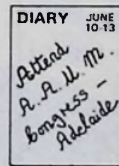 DIARY JUNE
10-13
Attend
A.A.U.M.
Congress –
Adelaide